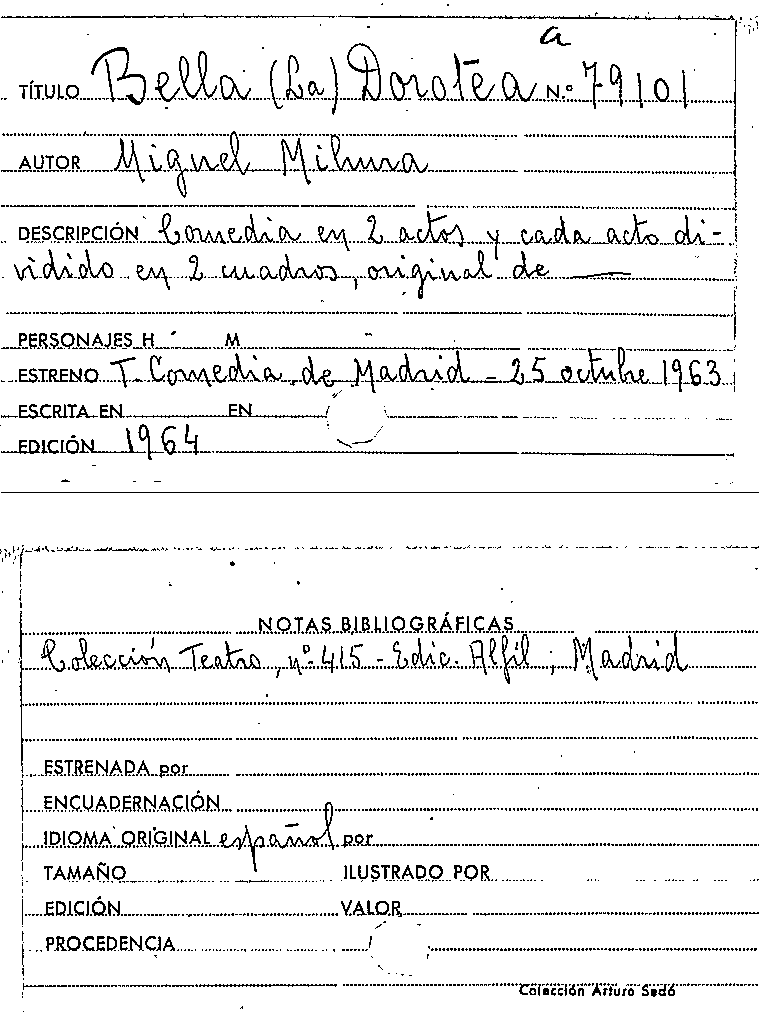 a
TÍTULO Bella (La) Dorotea N.º 79101
AUTOR Miguel Mihura
DESCRIPCIÓN Comedia en 2 actos y cada acto di-
vidido en 2 cuadros, original de —
PERSONAJES H M
ESTRENO T. Comedia de Madrid - 25 octubre 1963
ESCRITA EN EN
EDICIÓN 1964
NOTAS BIBLIOGRÁFICAS
Colección Teatro, nº 415 - Edic. Alfil; Madrid
ESTRENADA por
ENCUADERNACIÓN
IDIOMA ORIGINAL español por
TAMAÑO ILUSTRADO POR
EDICIÓN VALOR
PROCEDENCIA
Colección Arturo Sedó